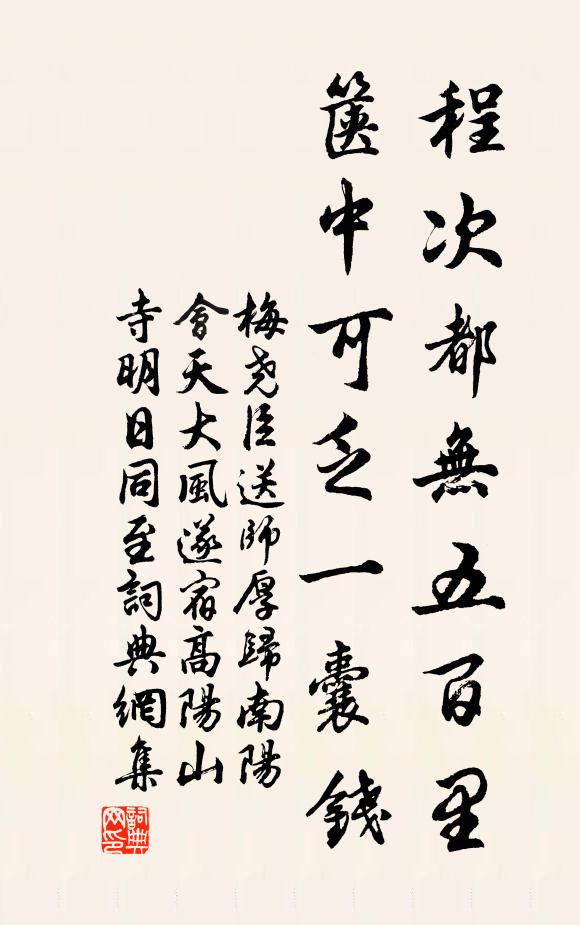 程次都無五百里
篋中可乏一囊錢
梅堯臣送師厚歸南陽
會天大風遂宿高陽山
寺明日同至詞典網集
詞典
网印